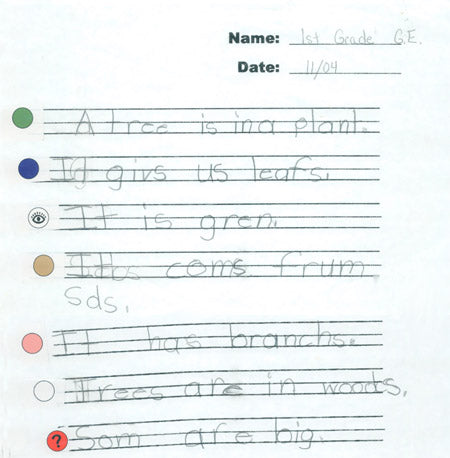 Name: 1st Grade G.E.
Date: 11/04
A tree is in a plant.
It givs us leafs.
It is gren.
coms frum
sds.
It has branchs.
Trees are in woods.
?
Som are big.